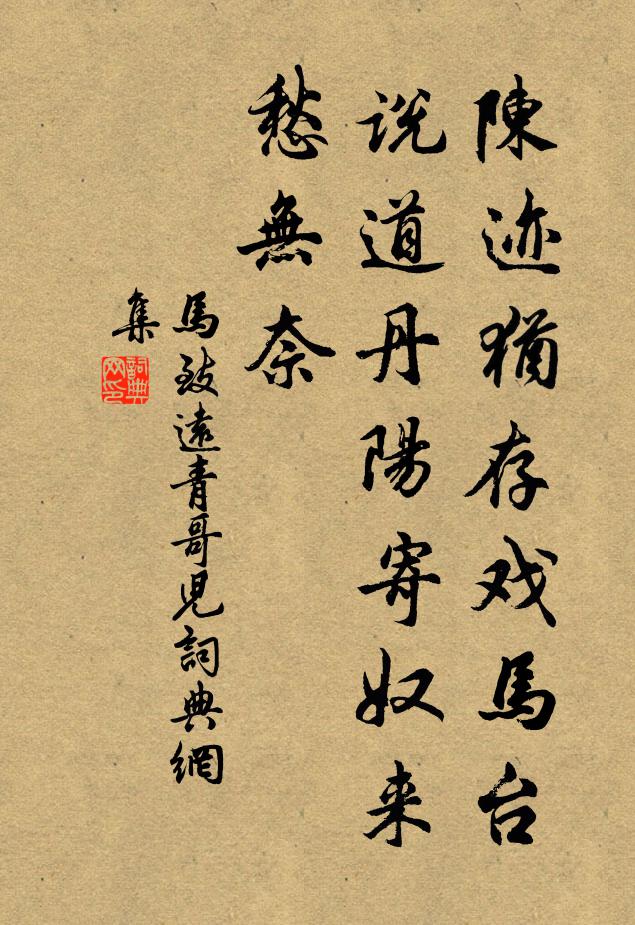 陳迹猶存戏馬台
説道丹陽寄奴来
愁無奈
馬致遠青哥児詞典網
集
詞典
网印